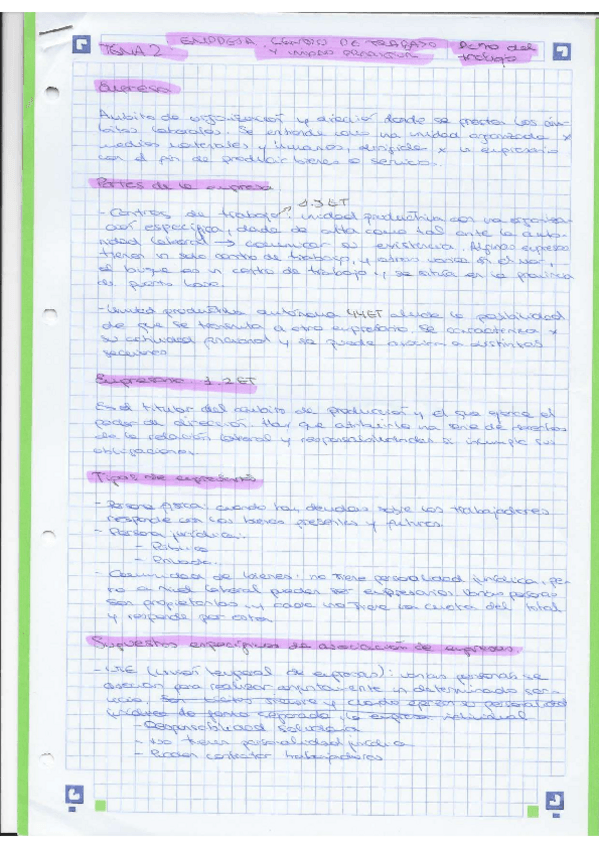 TEMA 2
EMPRESA, CENTRO DE TRABAJO
Y
Dcho del
trabajo
Empresa
Ámbito de organización y dirección donde se prestan los
laborales. Se entiende como una unidad organizada x
medios materiales y humanos, dirigida x un empresario
con el fin de producir bienes o servicios.
Partes de la empresa
1.5 ET
- Centros de trabajo: unidad productiva con una organiza-
ción específica, dada de alta como tal ante la auto-
ridad laboral → comunicar su existencia. Algunas empresas
tienen un solo centro de trabajo, y otras varios.
el buque es un centro de trabajo y se sitúa en la provincia
del puerto base.
- Unidad productiva autónoma 44ET alude la posibilidad
de que se transmita a otro empresario. Se caracteriza x
su actividad y se puede a distintas
secciones
Empresario 1.2 ET
Es el titular del ámbito de producción y el que ejerce el
poder de dirección. Hay que atribuirle una serie de derechos
de la relación laboral y responsabilidades x incumplir sus
obligaciones.
Tipos de empresarios
- Persona física: cuando hay deudas sobre los trabajadores
responde con los bienes presentes y futuros.
- Persona jurídica:
- Pública
- Privada.
- Comunidad de bienes: no tiene personalidad jurídica, pe-
ro a nivel laboral pueden ser empresarios. Varias personas
son propietarias y cada una tiene la cuota del total
y responde por esta.
Supuestos específicos de asociación de empresas
- UTE (unión temporal de empresas): varias personas se
asocian para realizar conjuntamente un determinado ser-
vicio. Son personalidad
jurídica de forma separada, la empresa individual
- Responsabilidad solidaria
- No tienen personalidad jurídica
- Pueden contratar trabajadores